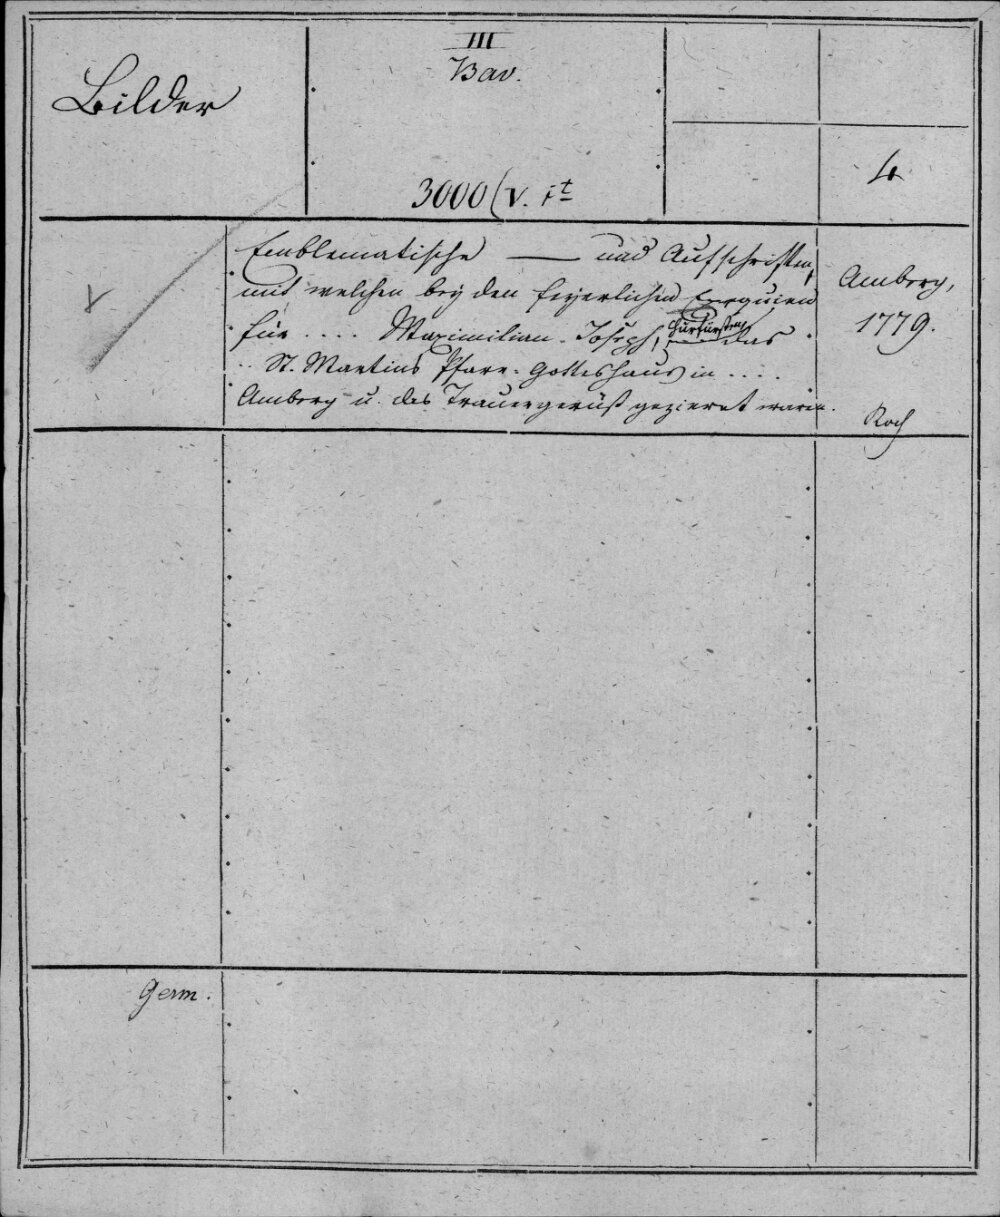 III
Bav.
Bilder
4.
3000 (V. it
Emblematische —— und Aufschriften,
mit welchen bey den feyerlichen Exequien
für .... Maximilian Joseph, Churfürsten das
.. St. Martins Pfarr-Gotteshaus in ....
Amberg u. das Trauergerüst gezieret waren.
Amberg,
1779.
Koch
Germ.